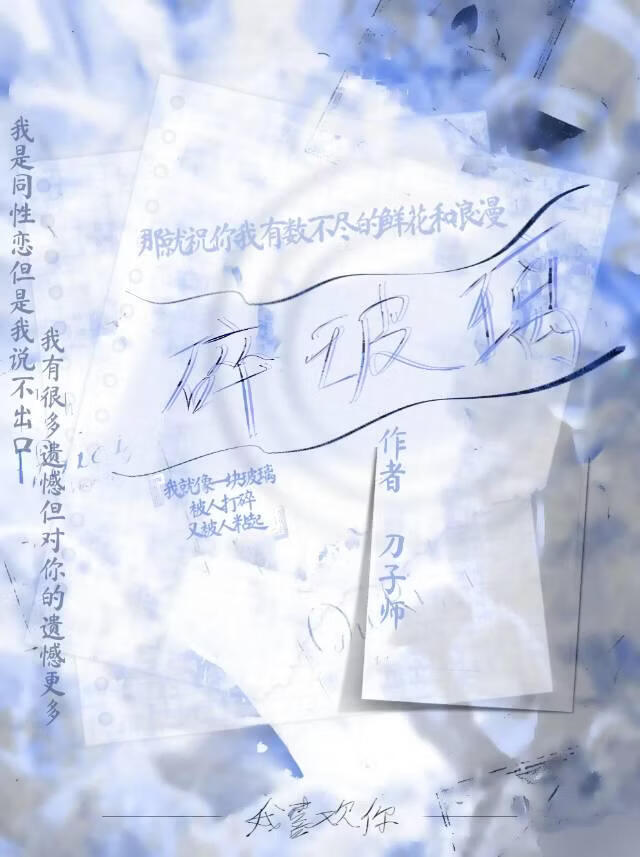 我是同性恋但是我说不出口
我有很多遗憾但对你的遗憾更多
那就祝你我有数不尽的鲜花和浪漫
碎玻璃
我就像一块玻璃
被人打碎
又被人粘起
作者 刀子师
我喜欢你